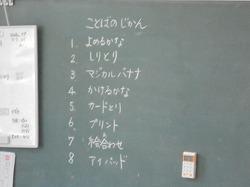 ことばのじかん
1. よめるかな
2. しりとり
3. マジカルバナナ
4. かけるかな
5. カードとり
6. プリント
7 絵合わせ
8 アイパッド